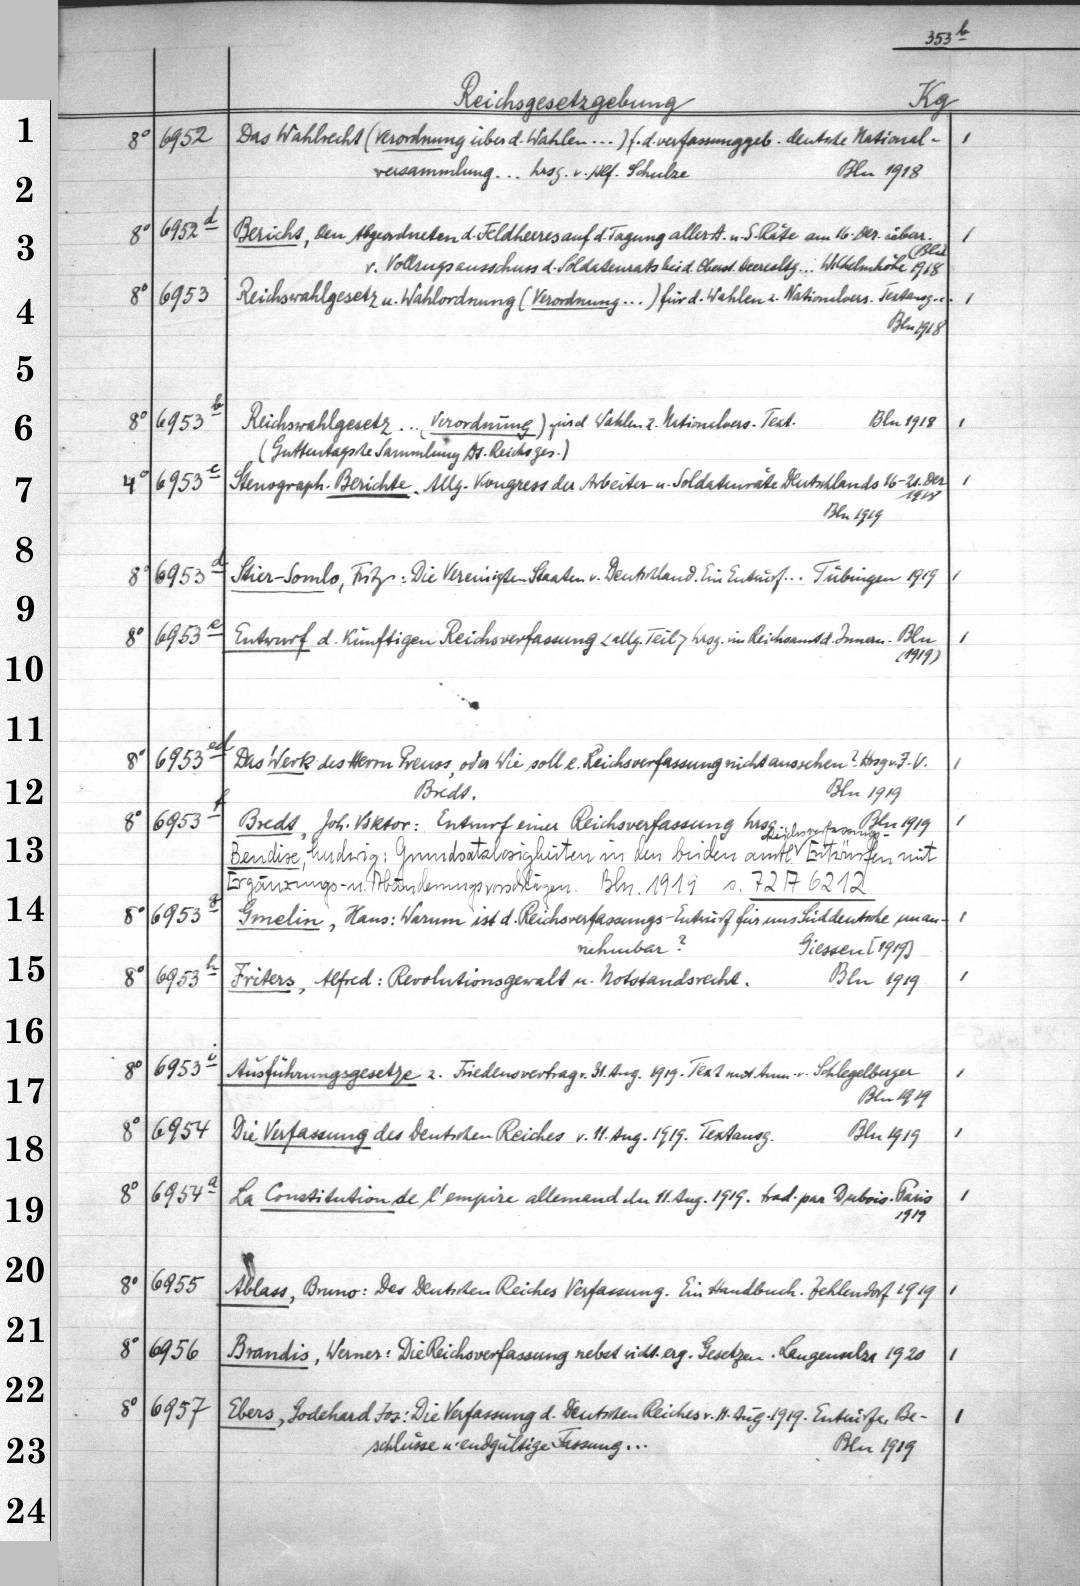 353 b
Reichsgesetzgebung Kg
1
8° 6952 Das Wahlrecht (Verordnung über d. Wahlen ...) f. d. verfassunggeb. deutsche National- 1
2
versammlung... hrsg. v. Alf. Schulze Bln 1918
3
8° 6952 d Bericht, den Abgeordneten d. Feldheeres auf d. Tagung aller A. u. S. Räte am 16. Dez. über. 1
v. Vollzugsausschuss d. Soldatenrats bei d. Oberst. Heeresltg... Wilhelmshöhe 1918
4
8° 6953 Reichswahlgesetz u. Wahlordnung (Verordnung ...) für d. Wahlen z. Nationalvers. Textausg... 1
Bln 1918
5
6
8° 6953 b Reichswahlgesetz ... (Verordnung) Wahlen z. Nationalvers. Text. Bln 1918 1
(Guttentagsche Sammlung Dt. Reichsges.)
7
4° 6953 c Stenograph. Berichte. Allg. Kongress der Arbeiter- u. Soldatenräte Deutschlands 16-21. Dez 1918 1
Bln 1919
8
8° 6953 d Stier-Somlo, Fritz: Die Vereinigten Staaten v. Deutschland. Ein Entwurf... Tübingen 1919 1
9
8° 6953 e Entwurf d. künftigen Reichsverfassung <allg. Teil> hrsg. im Reichsamt d. Innern. Bln 1
10
(1919)
11
8° 6953 ed Das Werk des Herrn Preuss, oder Wie soll e. Reichsverfassung nicht aussehen? Hrsg v. J. V. 1
12
Bredt. Bln 1919
8° 6953 f Bredt, Joh. Viktor: Entwurf einer Reichsverfassung hrsg. Bln 1919 1
Reichsverfassungs-
13
Bendixe, Ludwig: Grundsatzlosigkeiten in den beiden amtl. Entwürfen mit
Ergänzungs- u. Abänderungsvorschlägen. Bln. 1919 s. 72 A 6212
14
8° 6953 g Gmelin, Hans: Warum ist d. Reichsverfassungs-Entwurf für uns Süddeutsche unan- 1
nehmbar? Giessen [1919]
15
8° 6953 h Friters, Alfred: Revolutionsgewalt u. Notstandsrecht. Bln 1919 1
16
17
8° 6953 i Ausführungsgesetze z. Friedensvertrag v. 31. Aug. 1919. Text mit Anm. v. Schlegelberger 1
Bln 1919
18
8° 6954 Die Verfassung des Deutschen Reiches v. 11. Aug. 1919. Textausg. Bln 1919 1
19
8° 6954 a La Constitution de l'empire allemand du 11. Aug. 1919. trad. par Dubois. Paris 1
1919
20
8° 6955 Ablass, Bruno: Des Deutschen Reiches Verfassung. Ein Handbuch. Zehlendorf 1919 1
21
8° 6956 Brandis, Werner: Die Reichsverfassung nebst wicht. erg. Gesetzen. Langensalza 1920 1
22
8° 6957 Ebers, Godehard Jos: Die Verfassung d. Deutschen Reiches v. 11. Aug. 1919. Entwürfe, Be- 1
23
schlüsse u. endgültige Fassung... Bln 1919
24